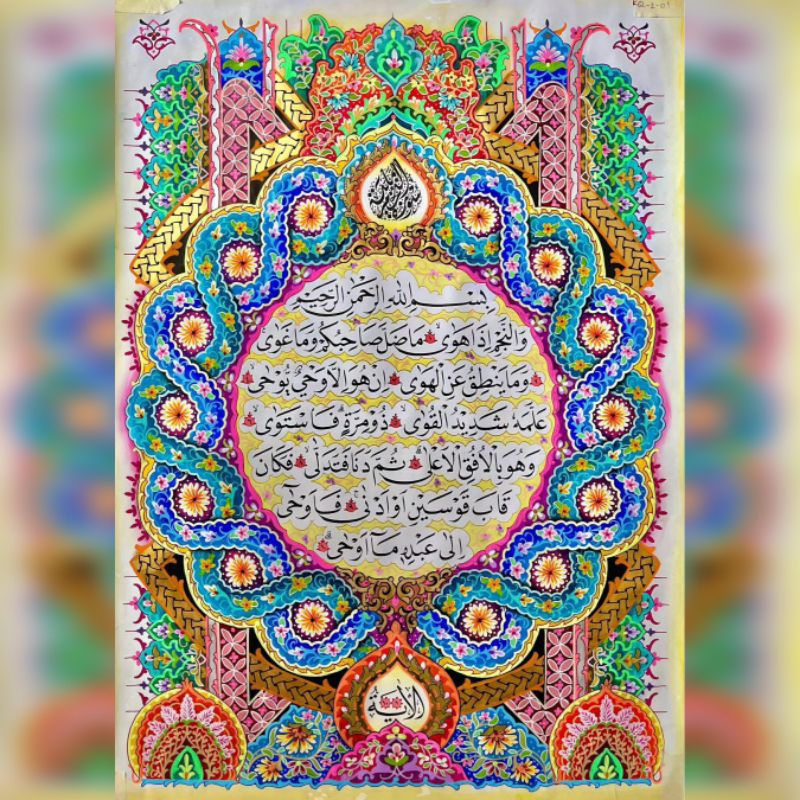 بِسْمِ اللهِ الرَّحْمٰنِ الرَّحِيْمِ
وَالنَّجْمِ اِذَا هَوٰى مَا ضَلَّ صَاحِبُكُمْ وَمَا غَوٰى
وَمَا يَنْطِقُ عَنِ الْهَوٰى اِنْ هُوَ اِلَّا وَحْيٌ يُوْحٰى
عَلَّمَهٗ شَدِيْدُ الْقُوٰى ذُوْ مِرَّةٍ فَاسْتَوٰى
وَهُوَ بِالْاُفُقِ الْاَعْلٰى ثُمَّ دَنَا فَتَدَلّٰى فَكَانَ
قَابَ قَوْسَيْنِ اَوْ اَدْنٰى فَاَوْحٰى
اِلٰى عَبْدِهٖ مَا اَوْحٰى
الْاٰيَة